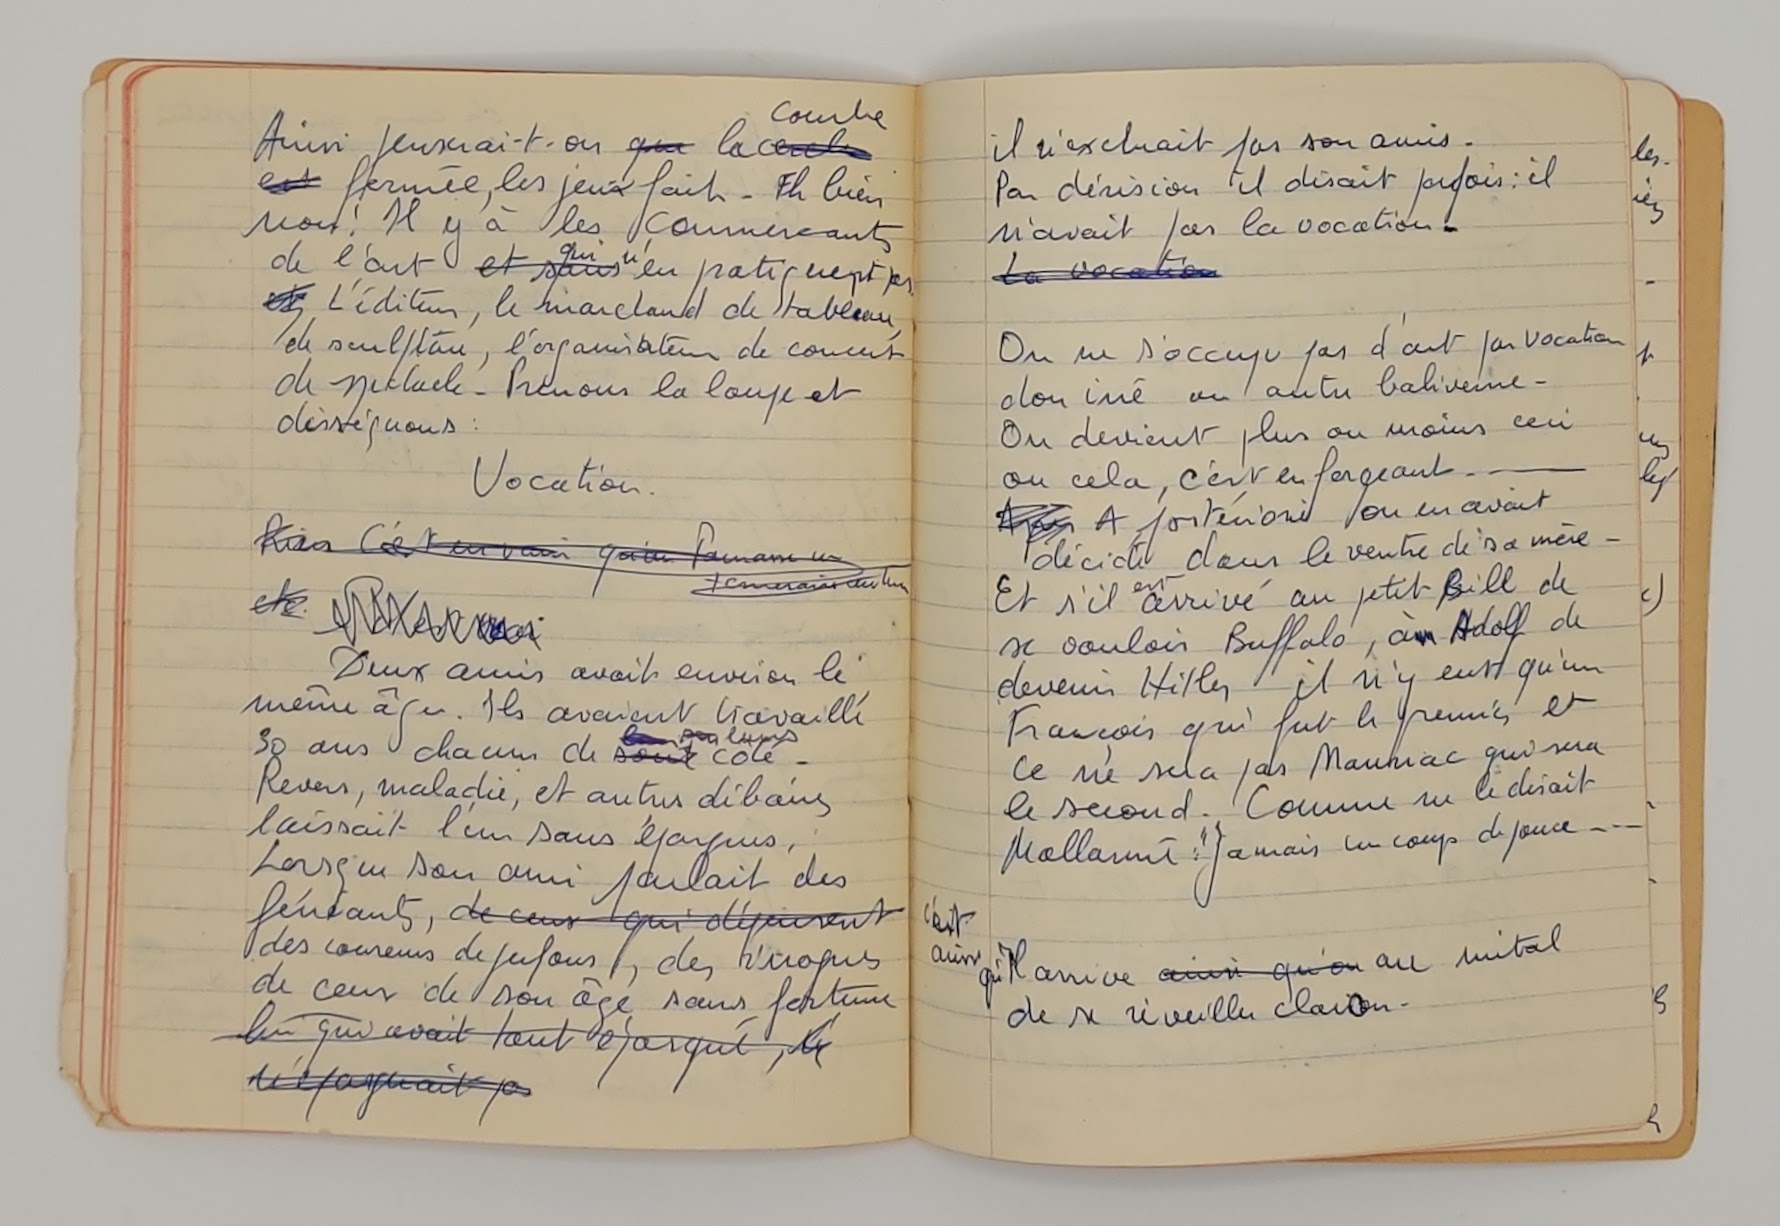 courbe
Ainsi penserai-t-on que la cercle
est fermée, les jeux fait - Eh bien
non! Il y à les commercants
de l'art et sans qui n'en pratiquent pas.
L'éditeur, le marchand de tableau,
de sculpture, l'organisateur de concert
de spectacle - Prenons la loupe et
disséquons :
Vocation.
C'est en vain qu'au Parnasse un
téméraire auteur
etc.
Deux amis avait environ le
même âge. Ils avaient travaillé
30 ans chacun de côté -
Revers, maladie, et autres déboires
laissait l'un sans épargnes,
Lorsque son ami parlait des
fénéants, de ceux qui dépensent
des coureurs de jupons, des ivrognes
de ceux de son âge sans fortune
lui qui avait tant épargné,
n'épargnait pas
il n'excluait pas son amis -
Par dérision il disait parfois : il
n'avait pas la vocation.
La vocation
On ne s'occupe pas d'art par vocation
don iné ou autre baliverne -
On devient plus ou moins ceci
ou cela, c'est en forgeant - ——
A postériori on en avait
décidé dans le ventre de sa mère -
Et s'il est arrivé au petit Bill de
se vouloir Buffalo, à un Adolf de
devenir Hitler il n'y eut qu'un
François qui fut le premier et
Ce ne sera pas Mauriac qui sera
le second. Comme me le disait
Mallarmé : "Jamais un coup de pouce ---
c'est
ainsi
qu'Il arrive ainsi qu'on au métal
de se réveiller clairon -